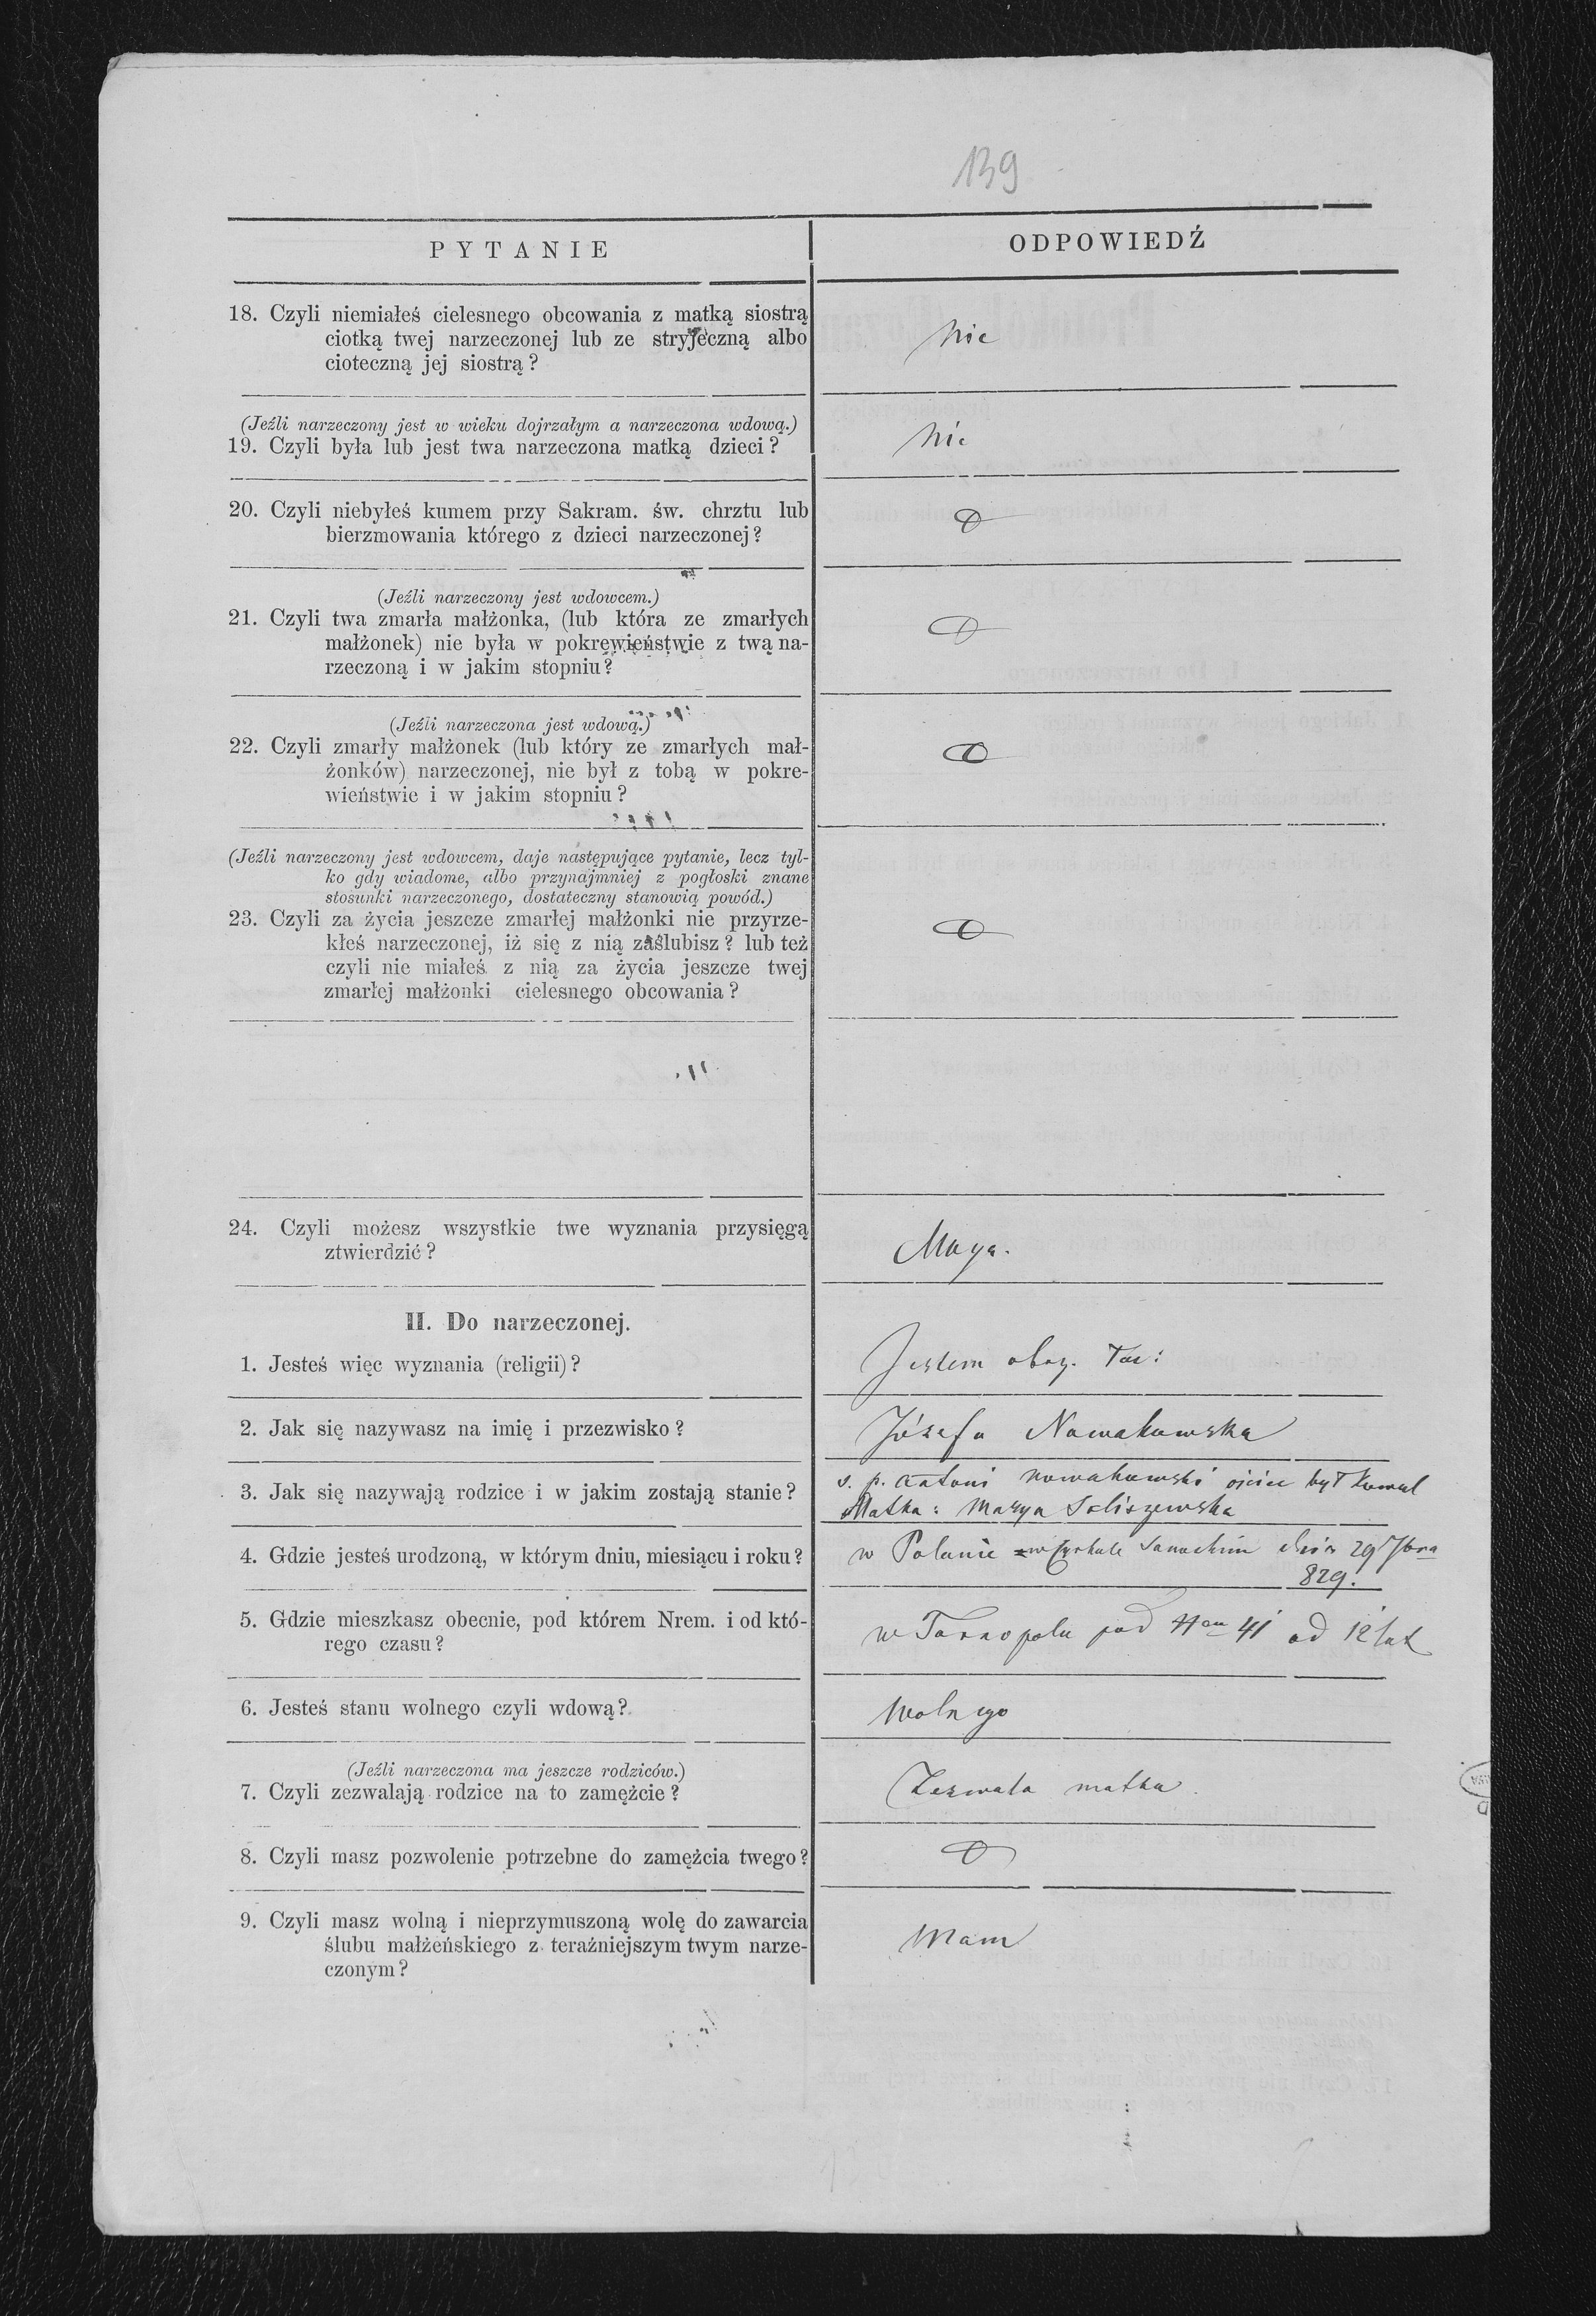 139
PYTANIE
ODPOWIEDŹ
18. Czyli niemiałeś cielesnego obcowania z matką siostrą
ciotką twej narzeczonej lub ze stryjeczną albo
cioteczną jej siostrą?
Nie
(Jeźli narzeczony jest w wieku dojrzałym a narzeczona wdową.)
19. Czyli była lub jest twa narzeczona matką dzieci?
Nie
20. Czyli niebyłeś kumem przy Sakram. św. chrztu lub
bierzmowania którego z dzieci narzeczonej?
(Jeźli narzeczony jest wdowcem.)
21. Czyli twa zmarła małżonka, (lub która ze zmarłych
małżonek) nie była w pokrewieństwie z twą na-
rzeczoną i w jakim stopniu?
(Jeźli narzeczona jest wdową.)
22. Czyli zmarły małżonek (lub który ze zmarłych mał-
żonków) narzeczonej, nie był z tobą w pokre-
wieństwie i w jakim stopniu?
(Jeźli narzeczony jest wdowcem, daje następujące pytanie, lecz tyl-
ko gdy wiadome, albo przynajmniej z pogłoski znane
stosunki narzeczonego, dostateczny stanowią powód.)
23. Czyli za życia jeszcze zmarłej małżonki nie przyrze-
kłeś narzeczonej, iż się z nią zaślubisz? lub też
czyli nie miałeś z nią za życia jeszcze twej
zmarłej małżonki cielesnego obcowania?
24. Czyli możesz wszystkie twe wyznania przysięgą
ztwierdzić?
Mogę.
II. Do narzeczonej.
1. Jesteś więc wyznania (religii)?
Jestem obrz. łac:
2. Jak się nazywasz na imię i przezwisko?
Józefa Nowakowska
3. Jak się nazywają rodzice i w jakim zostają stanie?
ś. p. Antoni Nowakowski ojciec był kowal
Matka: Marya
4. Gdzie jesteś urodzoną, w którym dniu, miesiącu i roku?
w Polanie w Cyrkule Sanockim dnia 29 7bra
829.
5. Gdzie mieszkasz obecnie, pod którem Nrem. i od któ-
rego czasu?
w Tarnopolu pod 41 od 12 lat
6. Jesteś stanu wolnego czyli wdową?
Wolnego
(Jeźli narzeczona ma jeszcze rodziców.)
7. Czyli zezwalają rodzice na to zamęźcie?
Zezwala matka.
8. Czyli masz pozwolenie potrzebne do zamęźcia twego?
9. Czyli masz wolną i nieprzymuszoną wolę do zawarcia
ślubu małżeńskiego z teraźniejszym twym narze-
czonym?
Mam